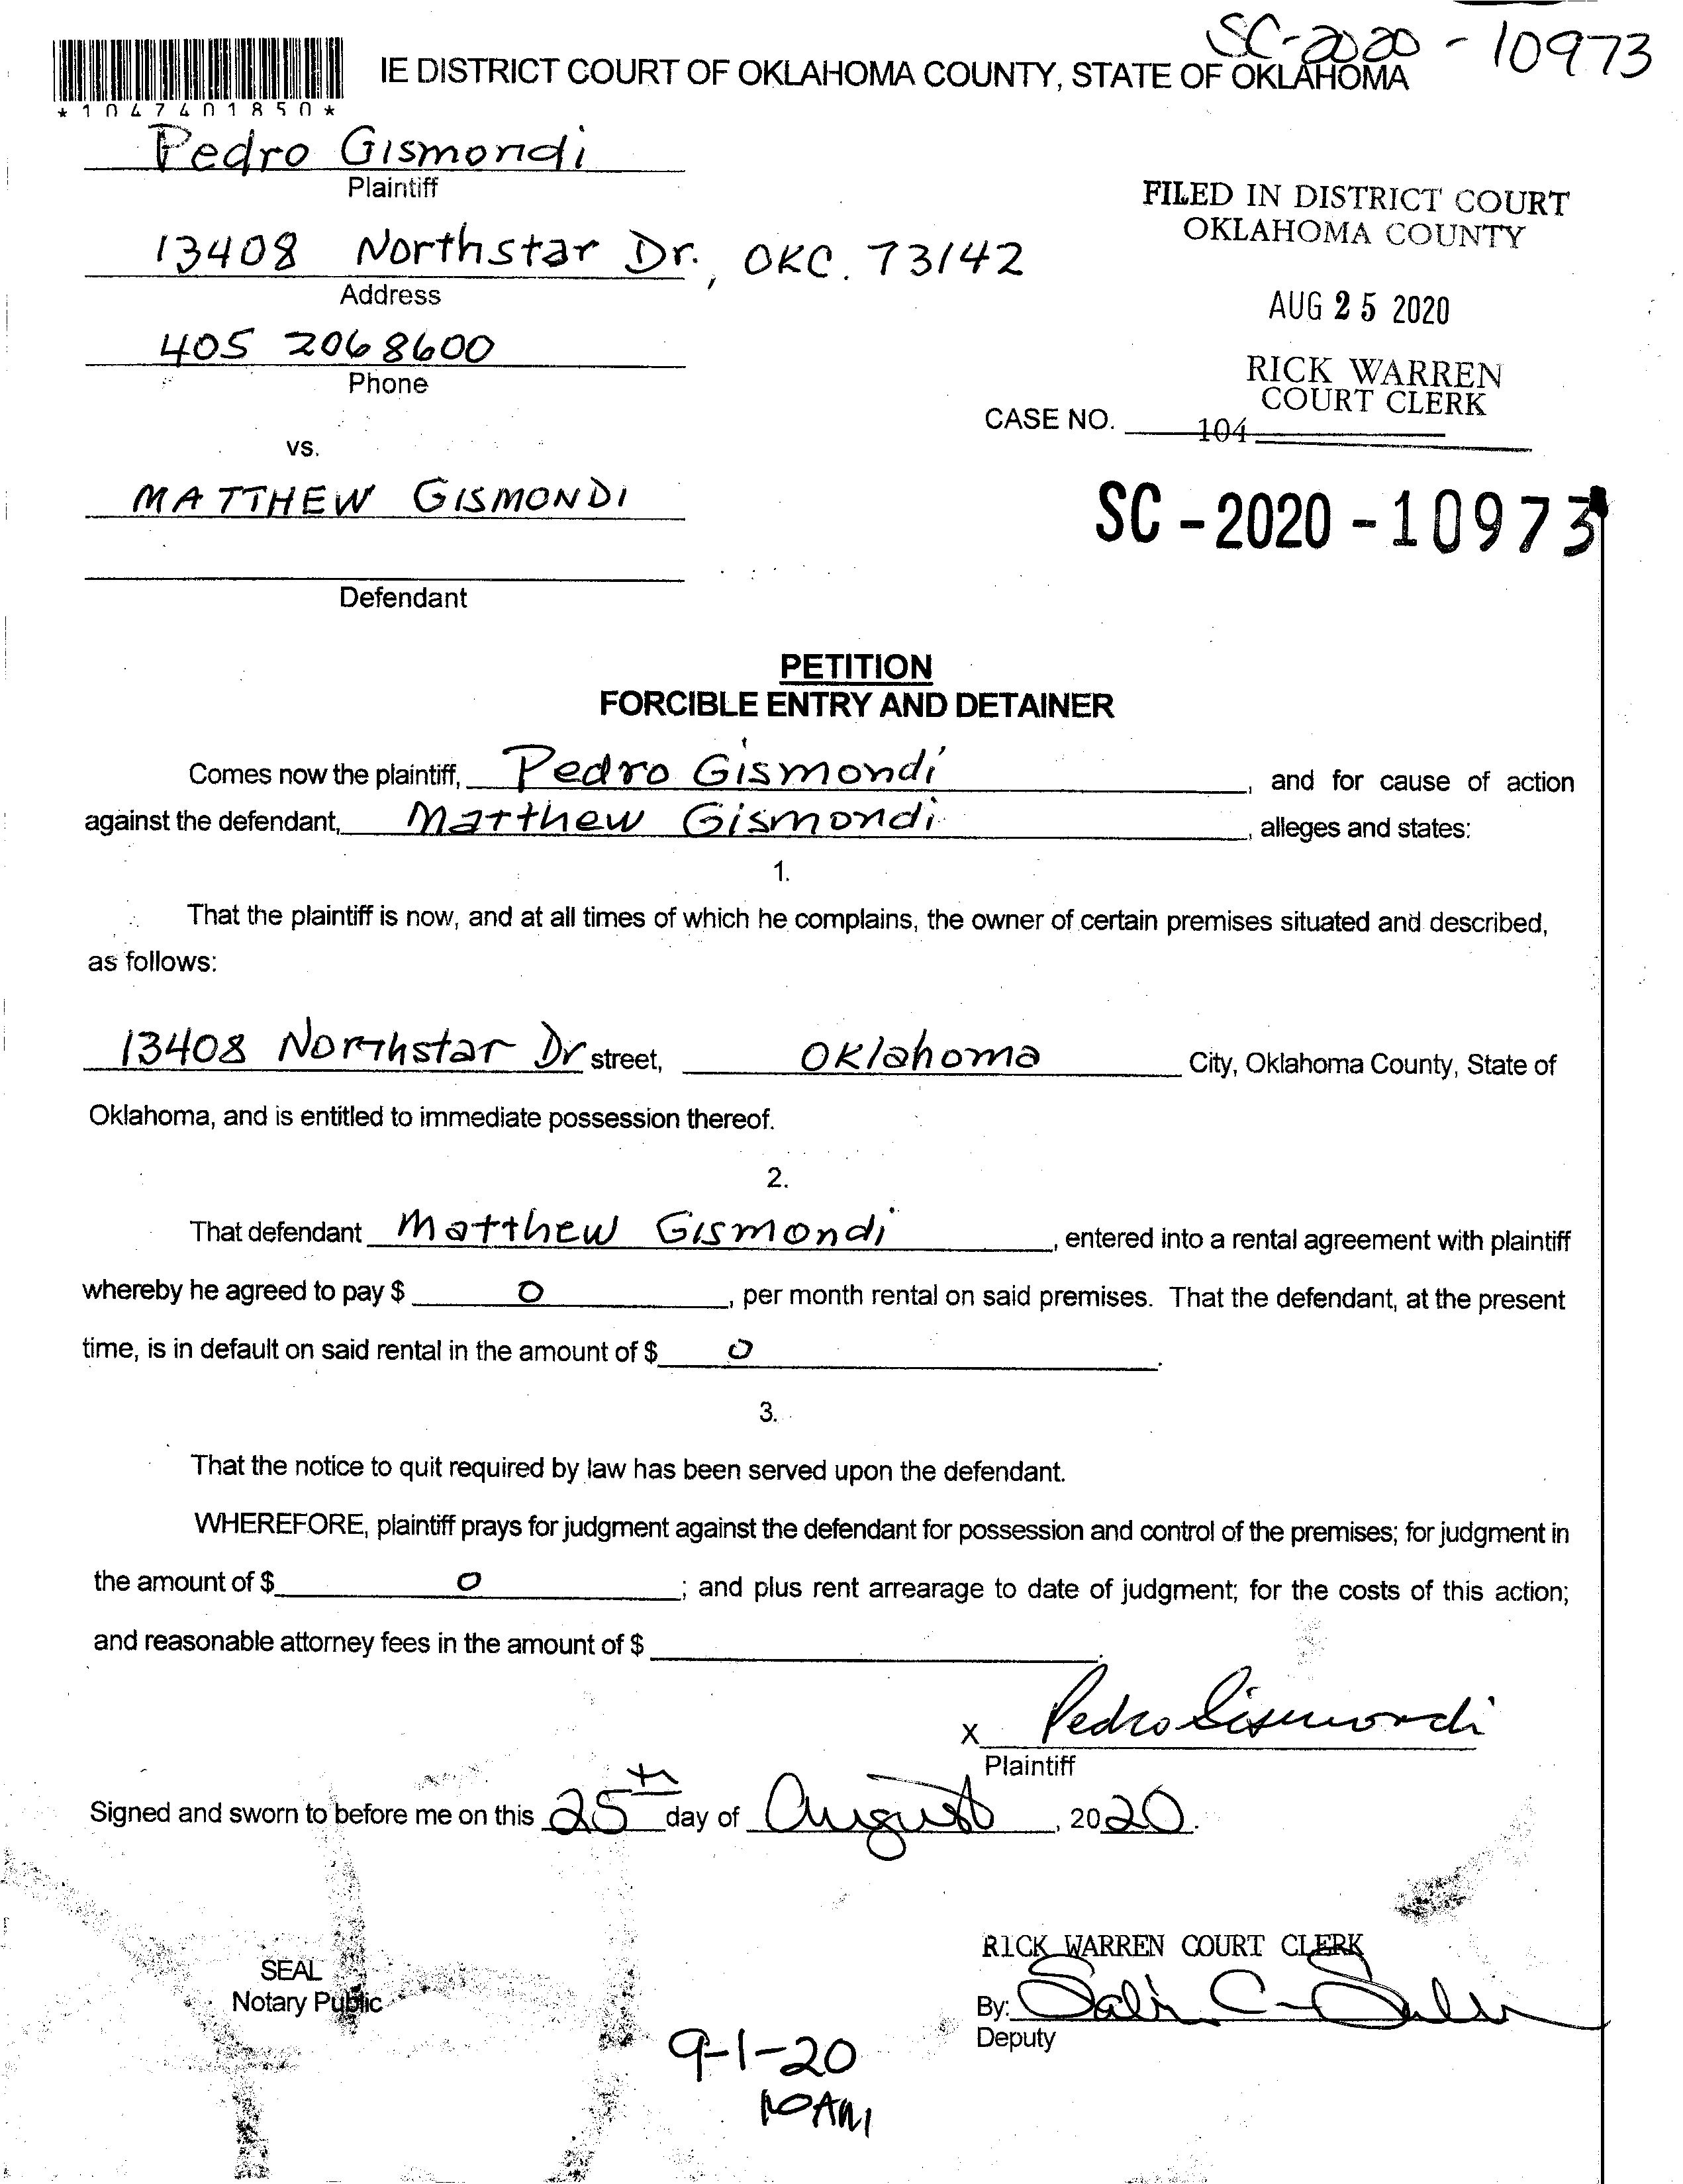 SC-2020-10973
IE DISTRICT COURT OF OKLAHOMA COUNTY, STATE OF OKLAHOMA
*1047401850*
Pedro Gismondi
Plaintiff
FILED IN DISTRICT COURT
OKLAHOMA COUNTY
13408 Northstar Dr., OKC. 73142
Address
AUG 25 2020
405 2068600
Phone
RICK WARREN
COURT CLERK
CASE NO.
104
vs.
MATTHEW GISMONDI
SC-2020-10973
Defendant
PETITION
FORCIBLE ENTRY AND DETAINER
Comes now the plaintiff, Pedro Gismondi, and for cause of action
against the defendant, Matthew Gismondi, alleges and states:
1.
That the plaintiff is now, and at all times of which he complains, the owner of certain premises situated and described,
as follows:
13408 Northstar Dr street, Oklahoma City, Oklahoma County, State of
Oklahoma, and is entitled to immediate possession thereof.
2.
That defendant Matthew Gismondi, entered into a rental agreement with plaintiff
whereby he agreed to pay $ 0, per month rental on said premises. That the defendant, at the present
time, is in default on said rental in the amount of $ 0.
3.
That the notice to quit required by law has been served upon the defendant.
WHEREFORE, plaintiff prays for judgment against the defendant for possession and control of the premises; for judgment in
the amount of $ 0; and plus rent arrearage to date of judgment; for the costs of this action;
and reasonable attorney fees in the amount of $.
X Pedro Gismondi
Plaintiff
Signed and sworn to before me on this 25th day of August, 2020.
RICK WARREN COURT CLERK
SEAL
Notary Public
By:
Deputy
9-1-20
10AM